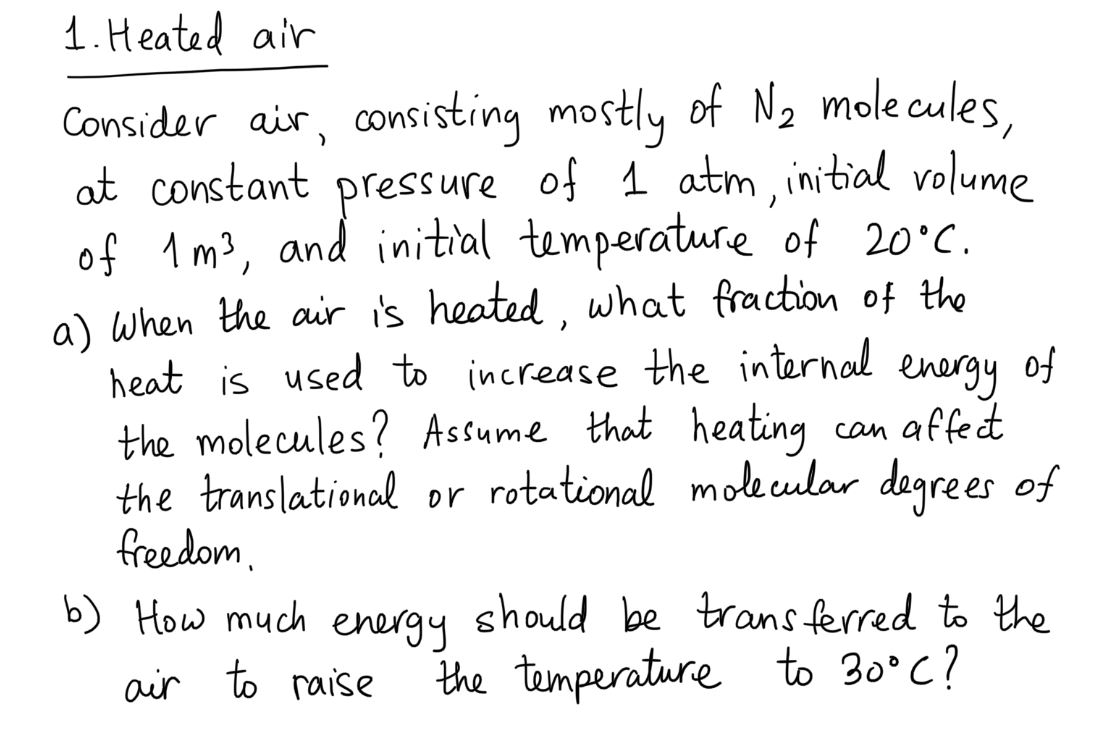 1. Heated air
Consider air, consisting mostly of N₂ molecules,
at constant pressure of 1 atm, initial volume
of 1 m³, and initial temperature of 20°C.
a) When the air is heated, what fraction of the
heat is used to increase the internal energy of
the molecules? Assume that heating can affect
the translational or rotational molecular degrees of
freedom.
b) How much energy should be transferred to the
air to raise the temperature to 30°C?